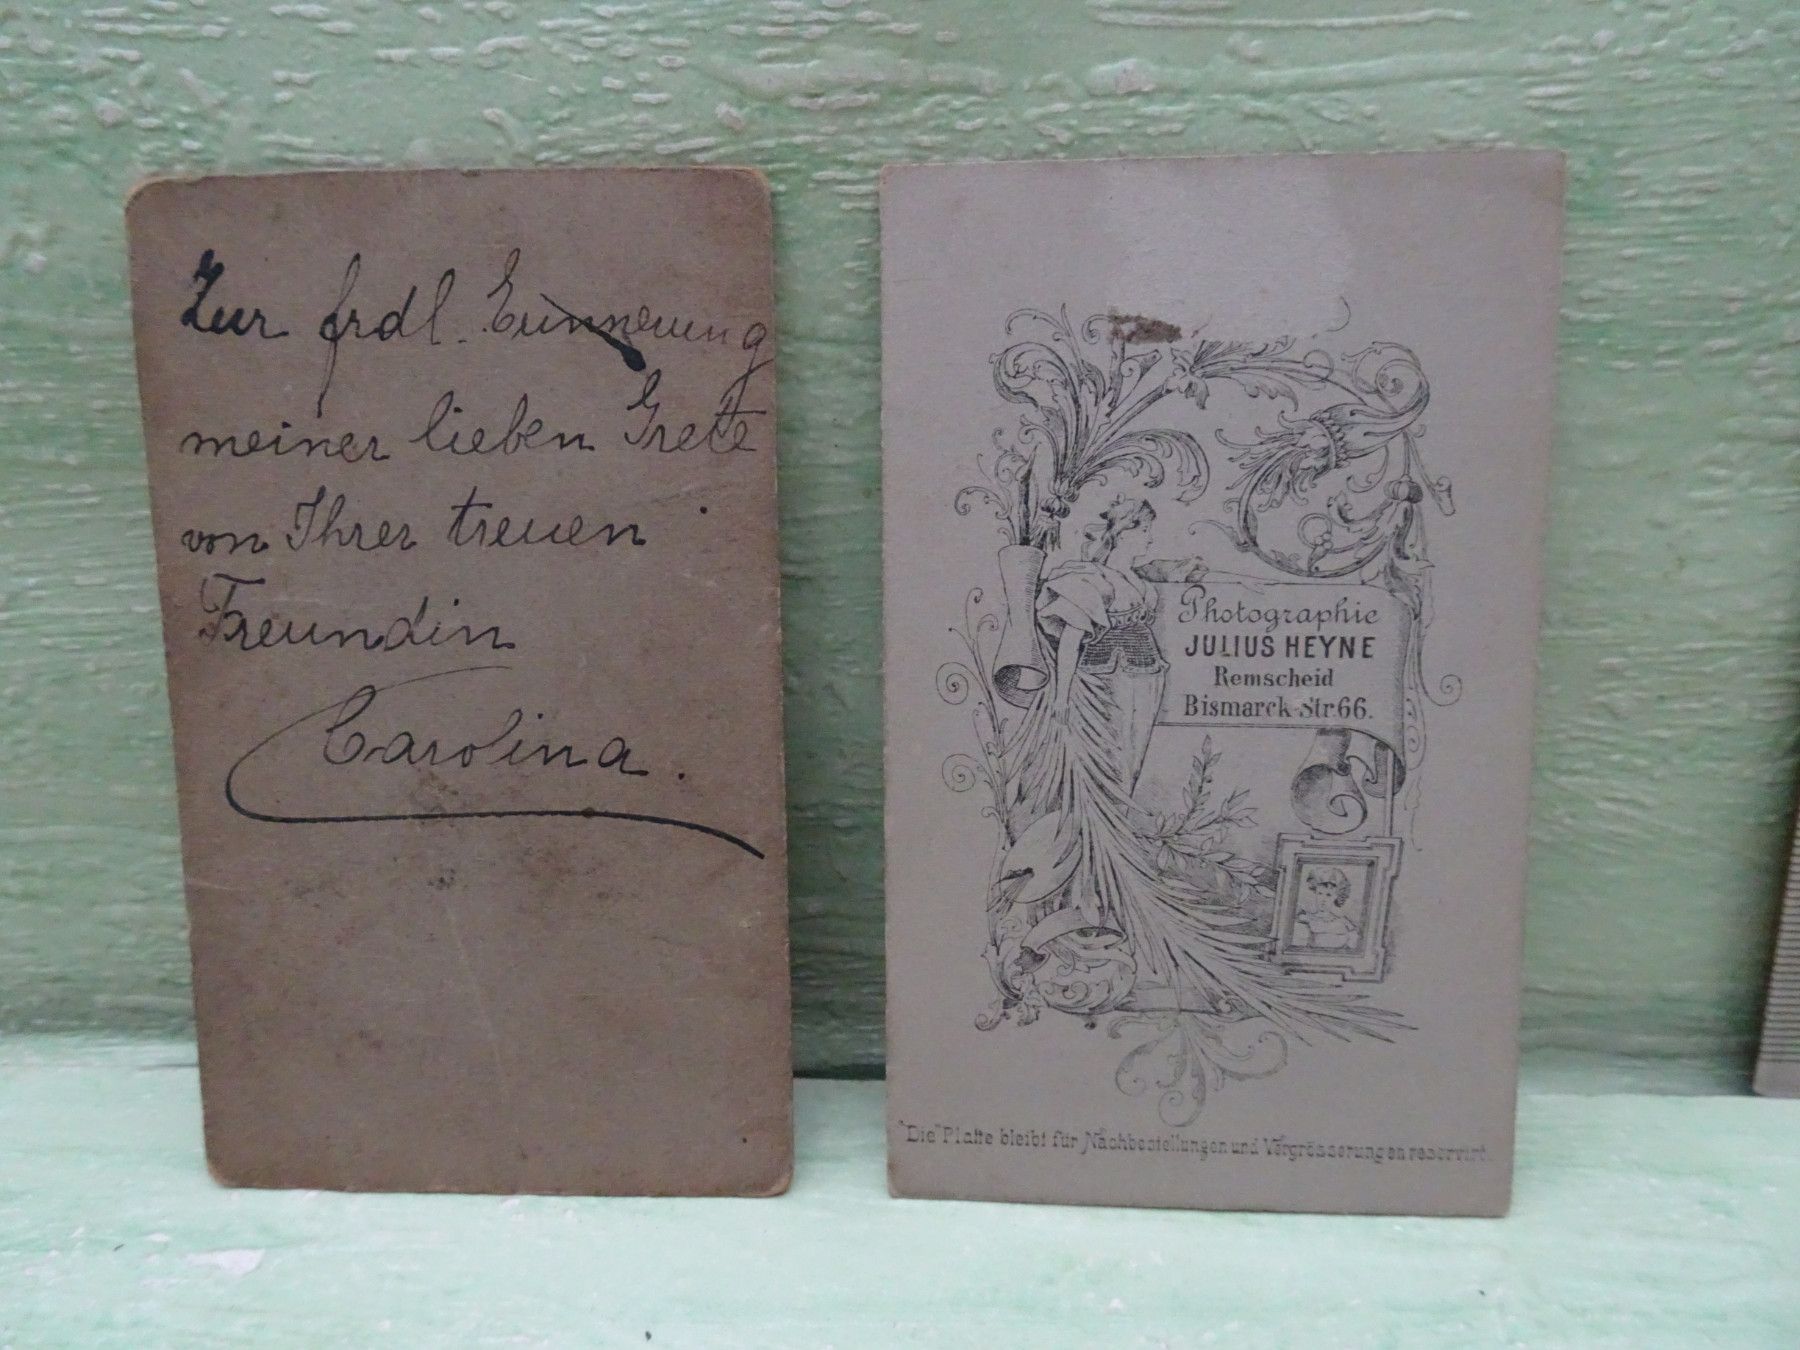 Zur frdl. Erinnerung
meiner lieben Grete
von Ihrer treuen
Freundin
Carolina.
Photographie
JULIUS HEYNE
Remscheid
Bismarck-Str. 66.
"Die" Platte bleibt für Nachbestellungen und Vergrösserungen reservirt.